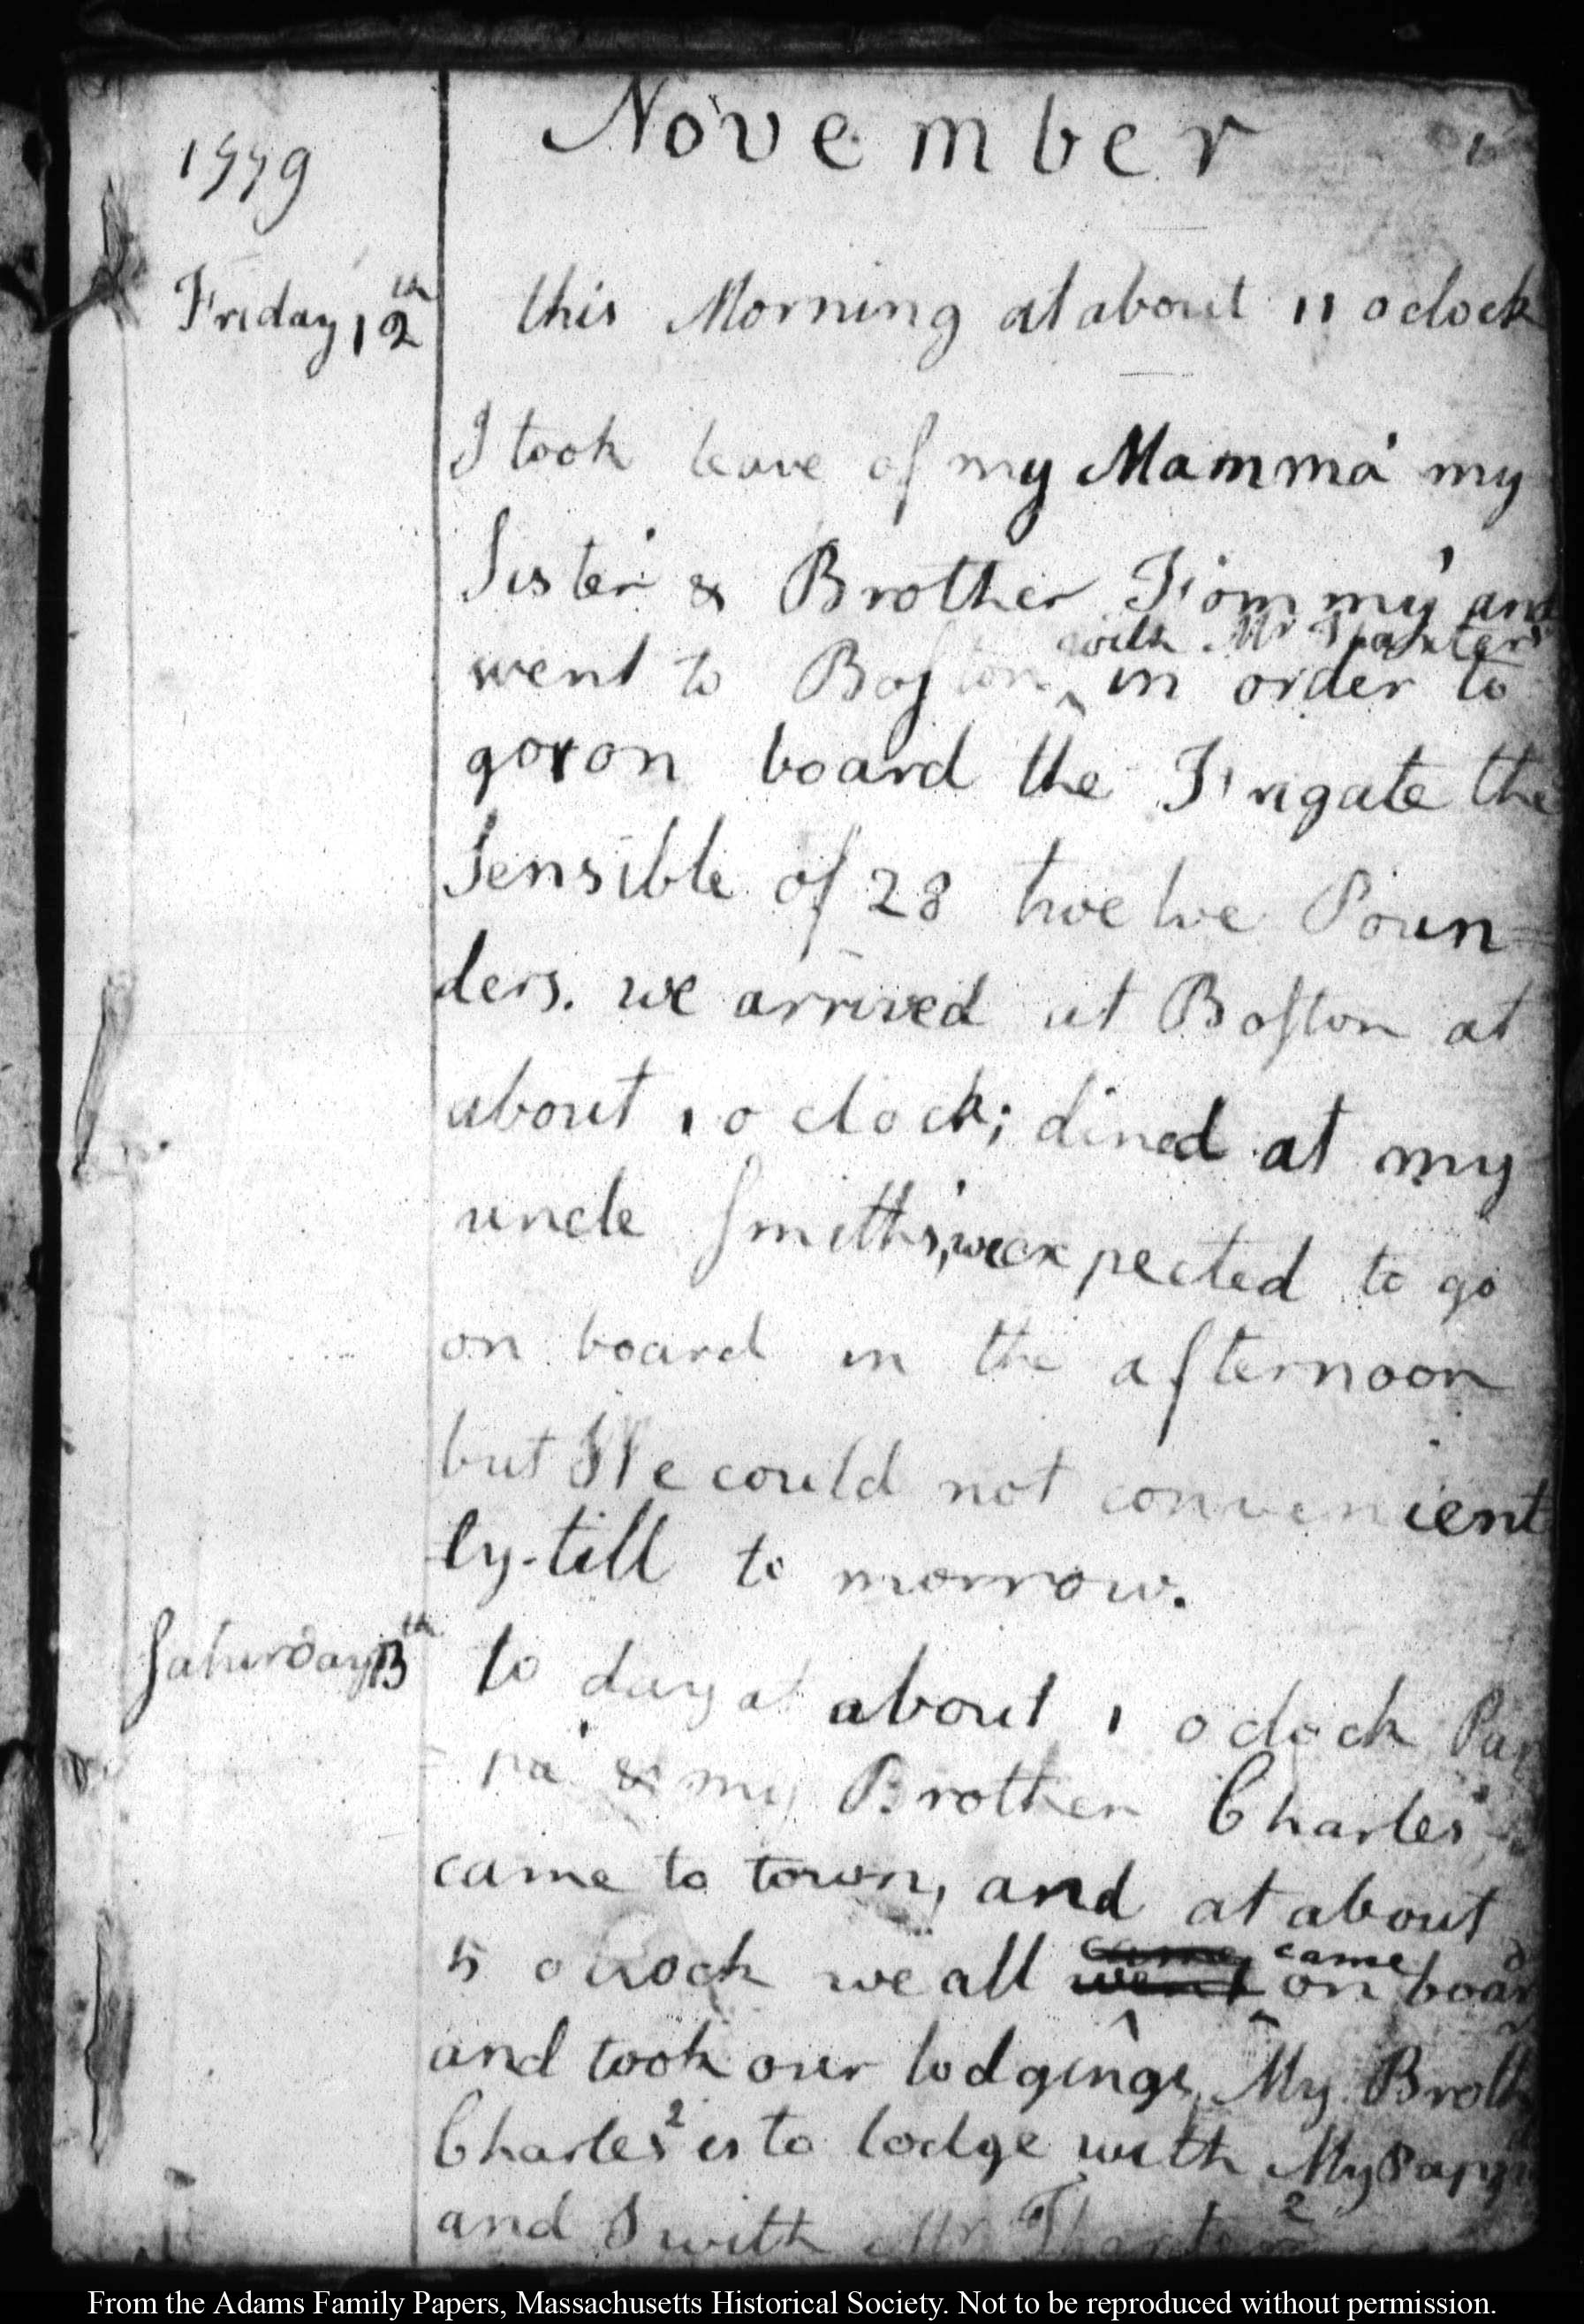 November
1779
Friday 12th this Morning at about 11 o clock
I took leave of my Mamma my
Sister & Brother Tommy and
with Mr Thaxter
went to Boston ^ in order to
go on board the Frigate the
Sensible of 28 twelve Poun=
ders. we arrived at Boston at
about 1 o clock; dined at my
uncle Smith's, we expected to go
on board in the afternoon
but We could not convenient
ly till to morrow.
Saturday 13th to day at about 1 o clock Pap
=pa & my Brother Charles
came to town, and at about
came came
5 o clock we all went on board
and took our lodgings, My Broth
Charles is to lodge with My Pappa
and I with Mr Thaxter
From the Adams Family Papers, Massachusetts Historical Society. Not to be reproduced without permission.